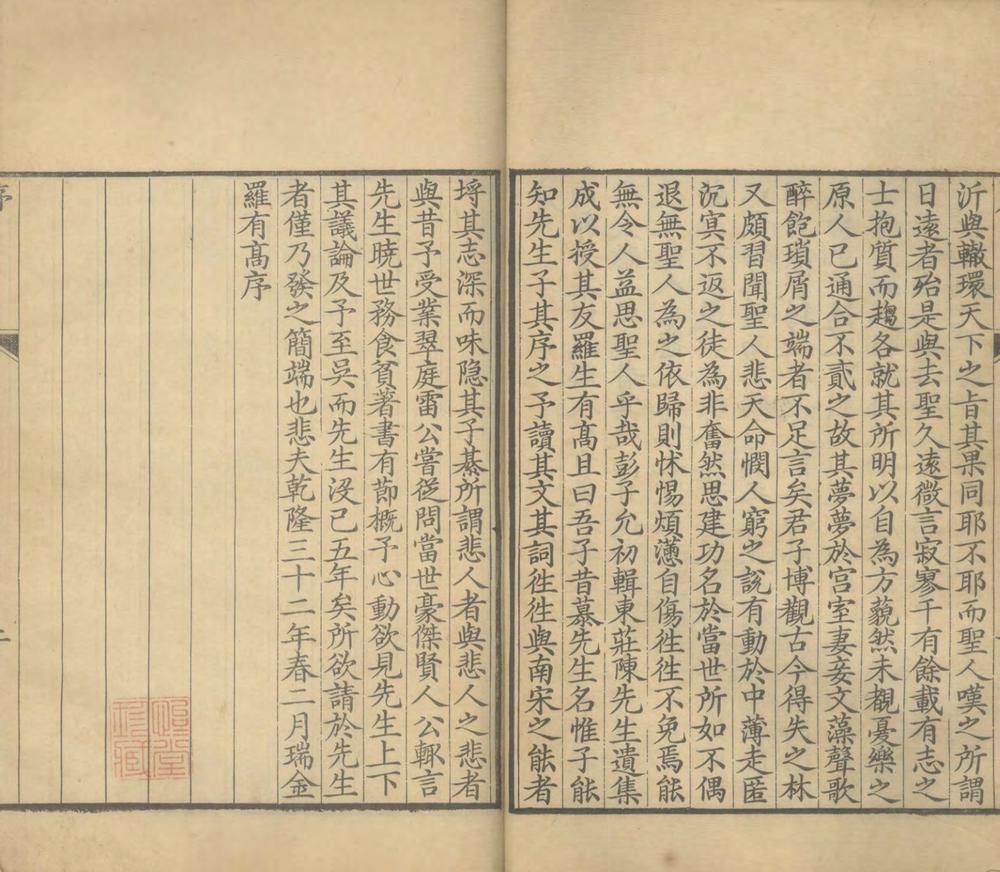 沂與轍環天下之旨其果同耶不耶而聖人嘆之所謂
日遠者殆是與去聖久遠微言寂寥千有餘載有志之
士抱質而趨各就其所明以自為方藐然未覩憂樂之
原人已通合不貳之故其夢夢於宫室妻妾文藻聲歌
醉飽瑣屑之端者不足言矣君子博觀古今得失之林
又頗習聞聖人悲天命憫人窮之說有動於中薄走匿
沉冥不返之徒為非奮然思建功名於當世所如不偶
退無聖人為之依歸則怵惕煩懣自傷徃徃不免焉能
無令人益思聖人乎哉彭子允初輯東莊陳先生遺集
成以授其友羅生有髙且曰吾子昔慕先生名惟子能
知先生子其序之予讀其文其詞徃徃與南宋之能者
埓其志深而味隐其子綦所謂悲人者與悲人之悲者
與昔予受業翠庭雷公嘗從問當世豪傑賢人公輒言
先生曉世務食貧著書有節概予心動欲見先生上下
其議論及予至吳而先生没已五年矣所欲請於先生
者僅乃發之簡端也悲夫乾隆三十二年春二月瑞金
羅有髙序
序
二